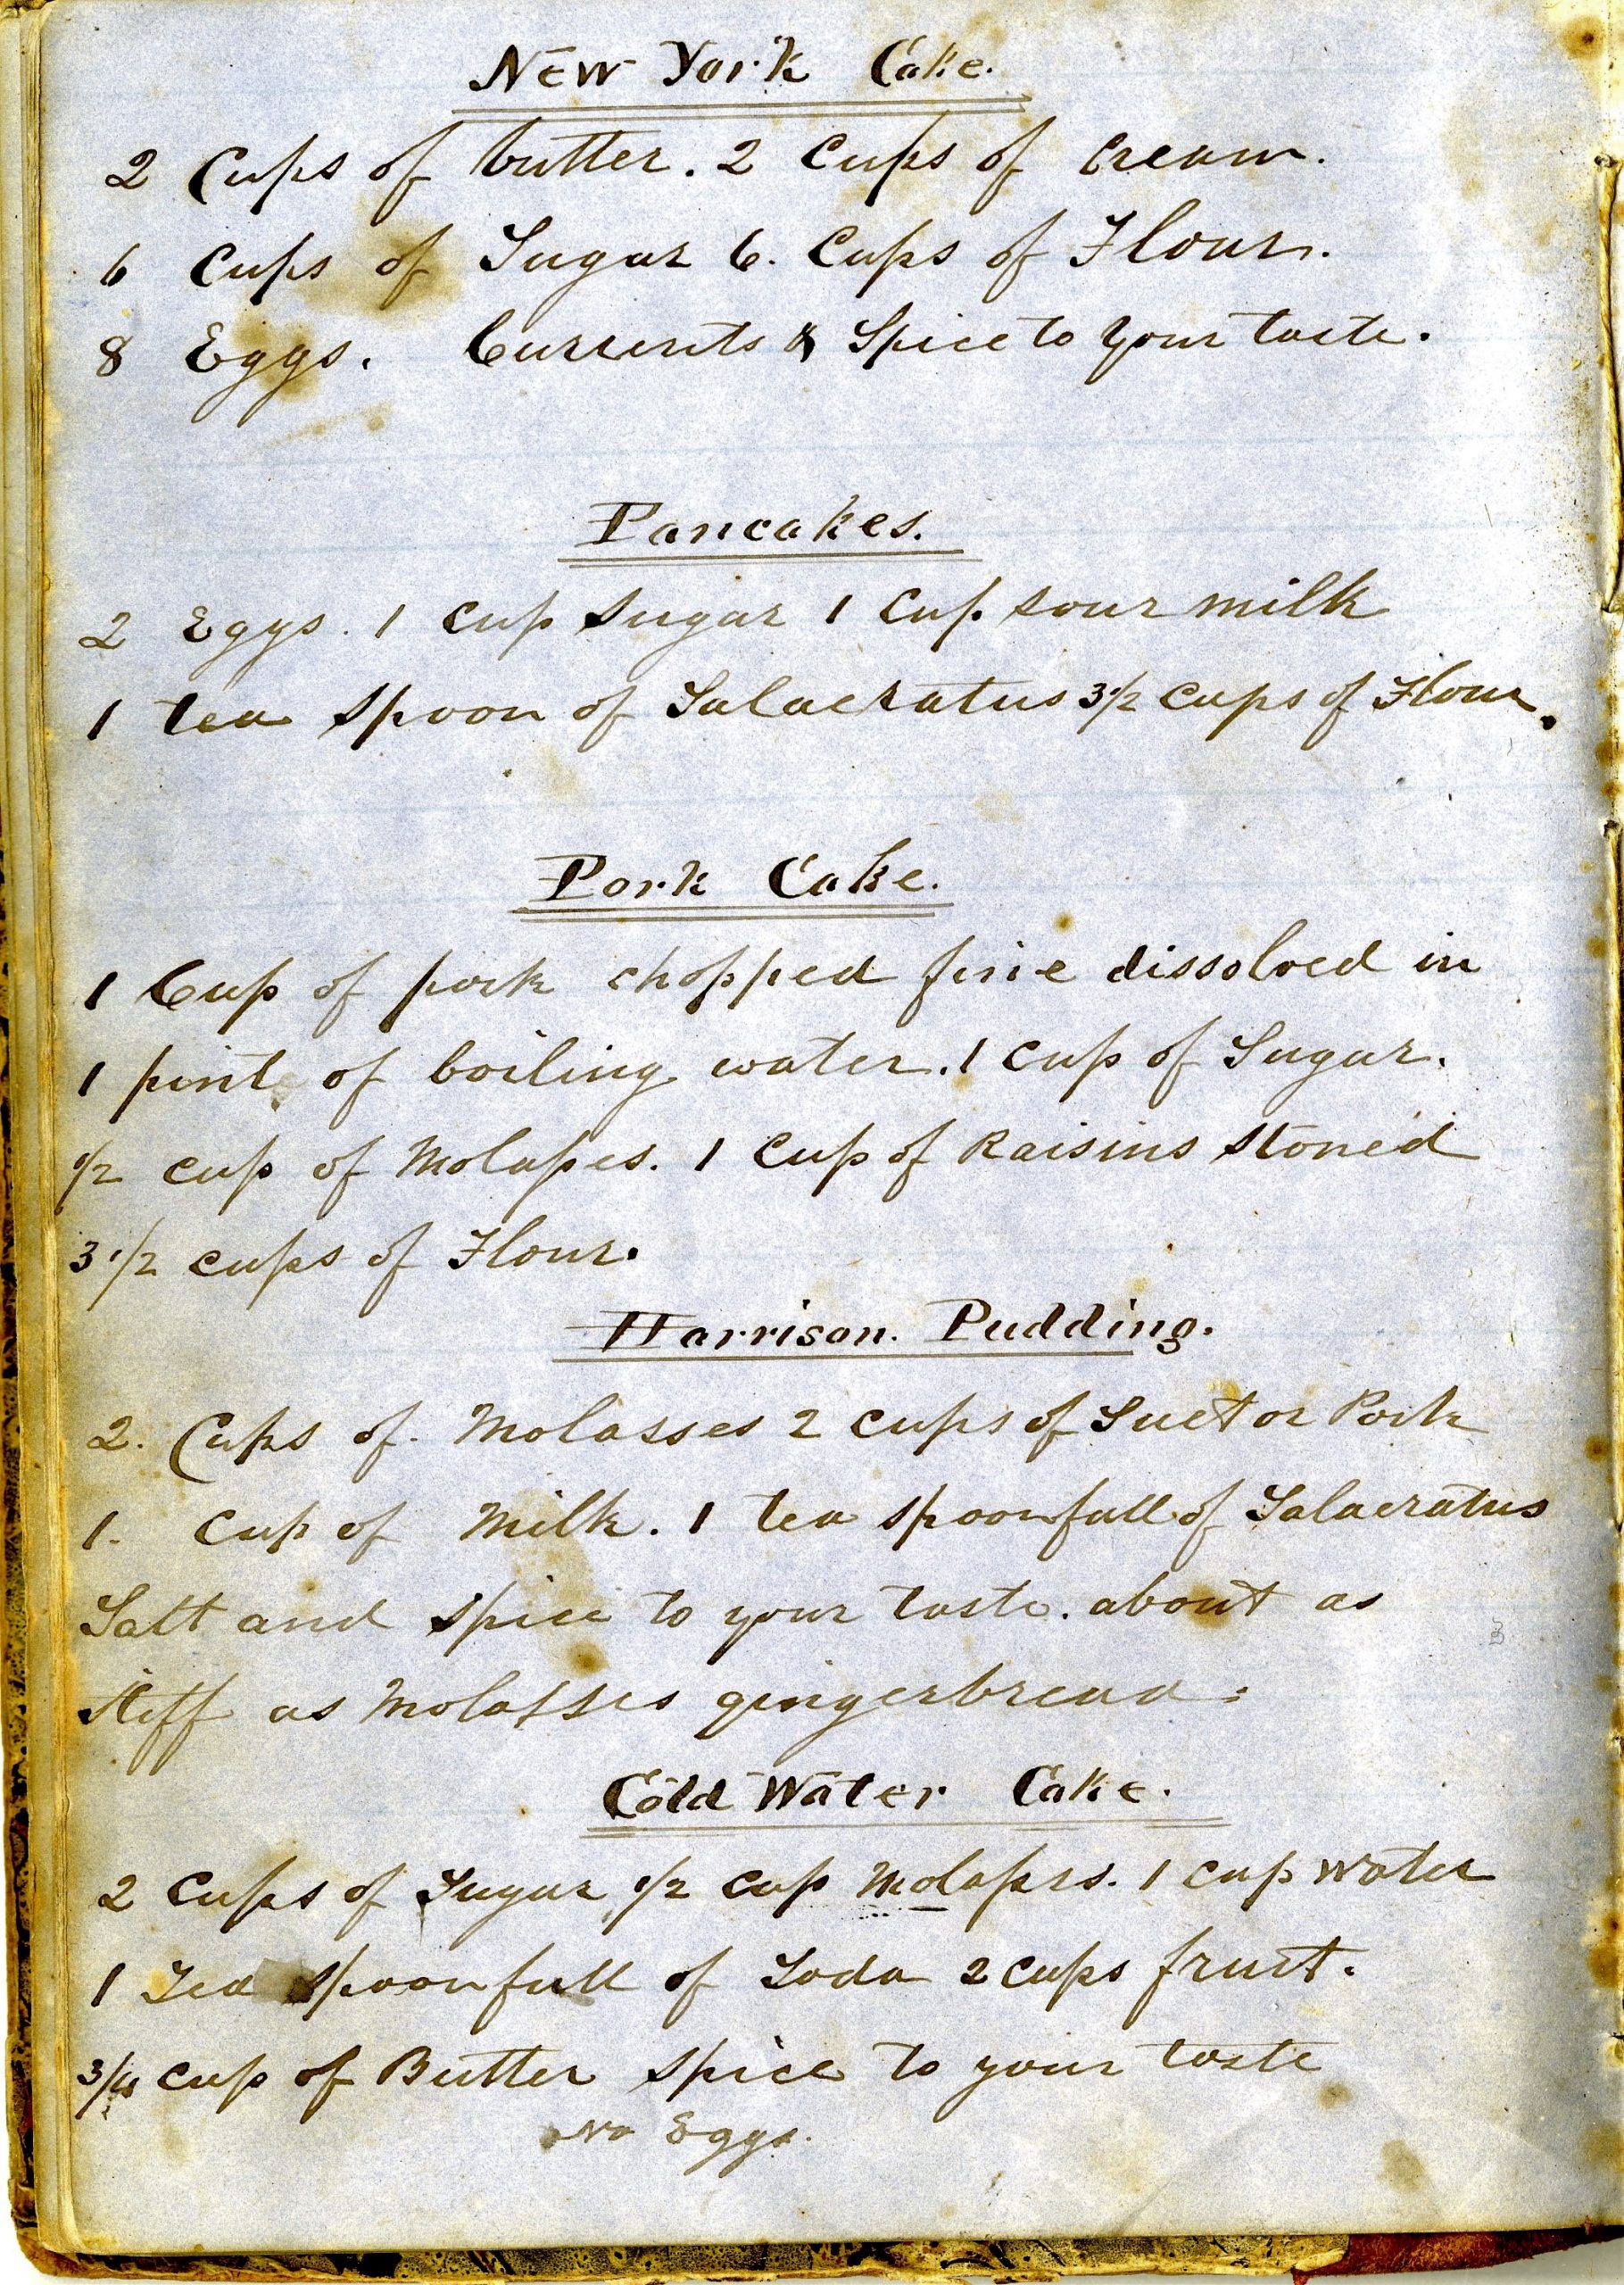 New York Cake.
2 Cups of butter. 2 Cups of Cream.
6 Cups of Sugar 6. Cups of Flour.
8 Eggs. Currents & Spice to your taste.
Pancakes.
2 Eggs. 1 Cup Sugar 1 Cup. sour milk
1 tea spoon of Salaeratus 3 1/2 Cups of Flour.
Pork Cake.
1 Cup of pork chopped fine dissolved in
1 pint of boiling water. 1 cup of Sugar.
1/2 cup of Molasses. 1 Cup of Raisins stoned
3 1/2 cups of Flour.
Harrison. Pudding.
2. Cups of. Molasses 2 cups of Suet or Pork
1. Cup of Milk. 1 tea spoonfull of Salaeratus
Salt and spice to your taste. about as
stiff as Molasses gingerbread.
Cold Water Cake.
2 Cups of Sugar 1/2 cup Molasses. 1 cup water
1 Tea spoonfull of Soda 2 cups fruit.
3/4 cup of Butter spice to your taste
No Eggs.